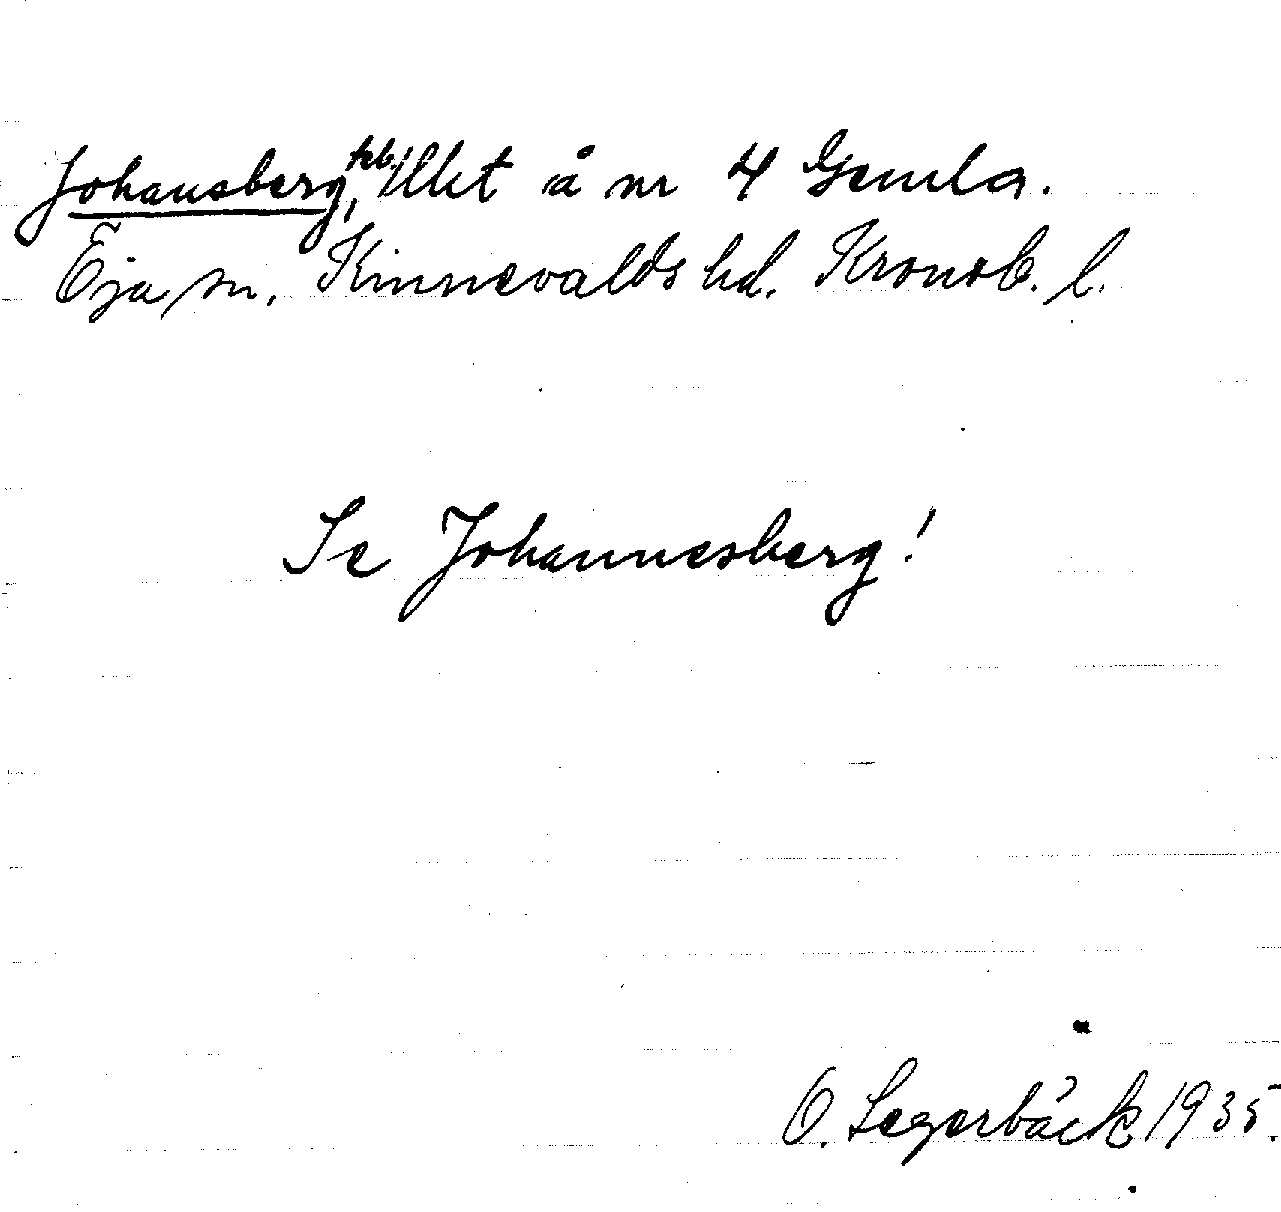 Johansberg, tcb. Uket å nr 4 Gemla.
Öja sn. Kinnevalds hd. Kronob. l.
Se Johannesberg!
O. Segerbäck 1935.